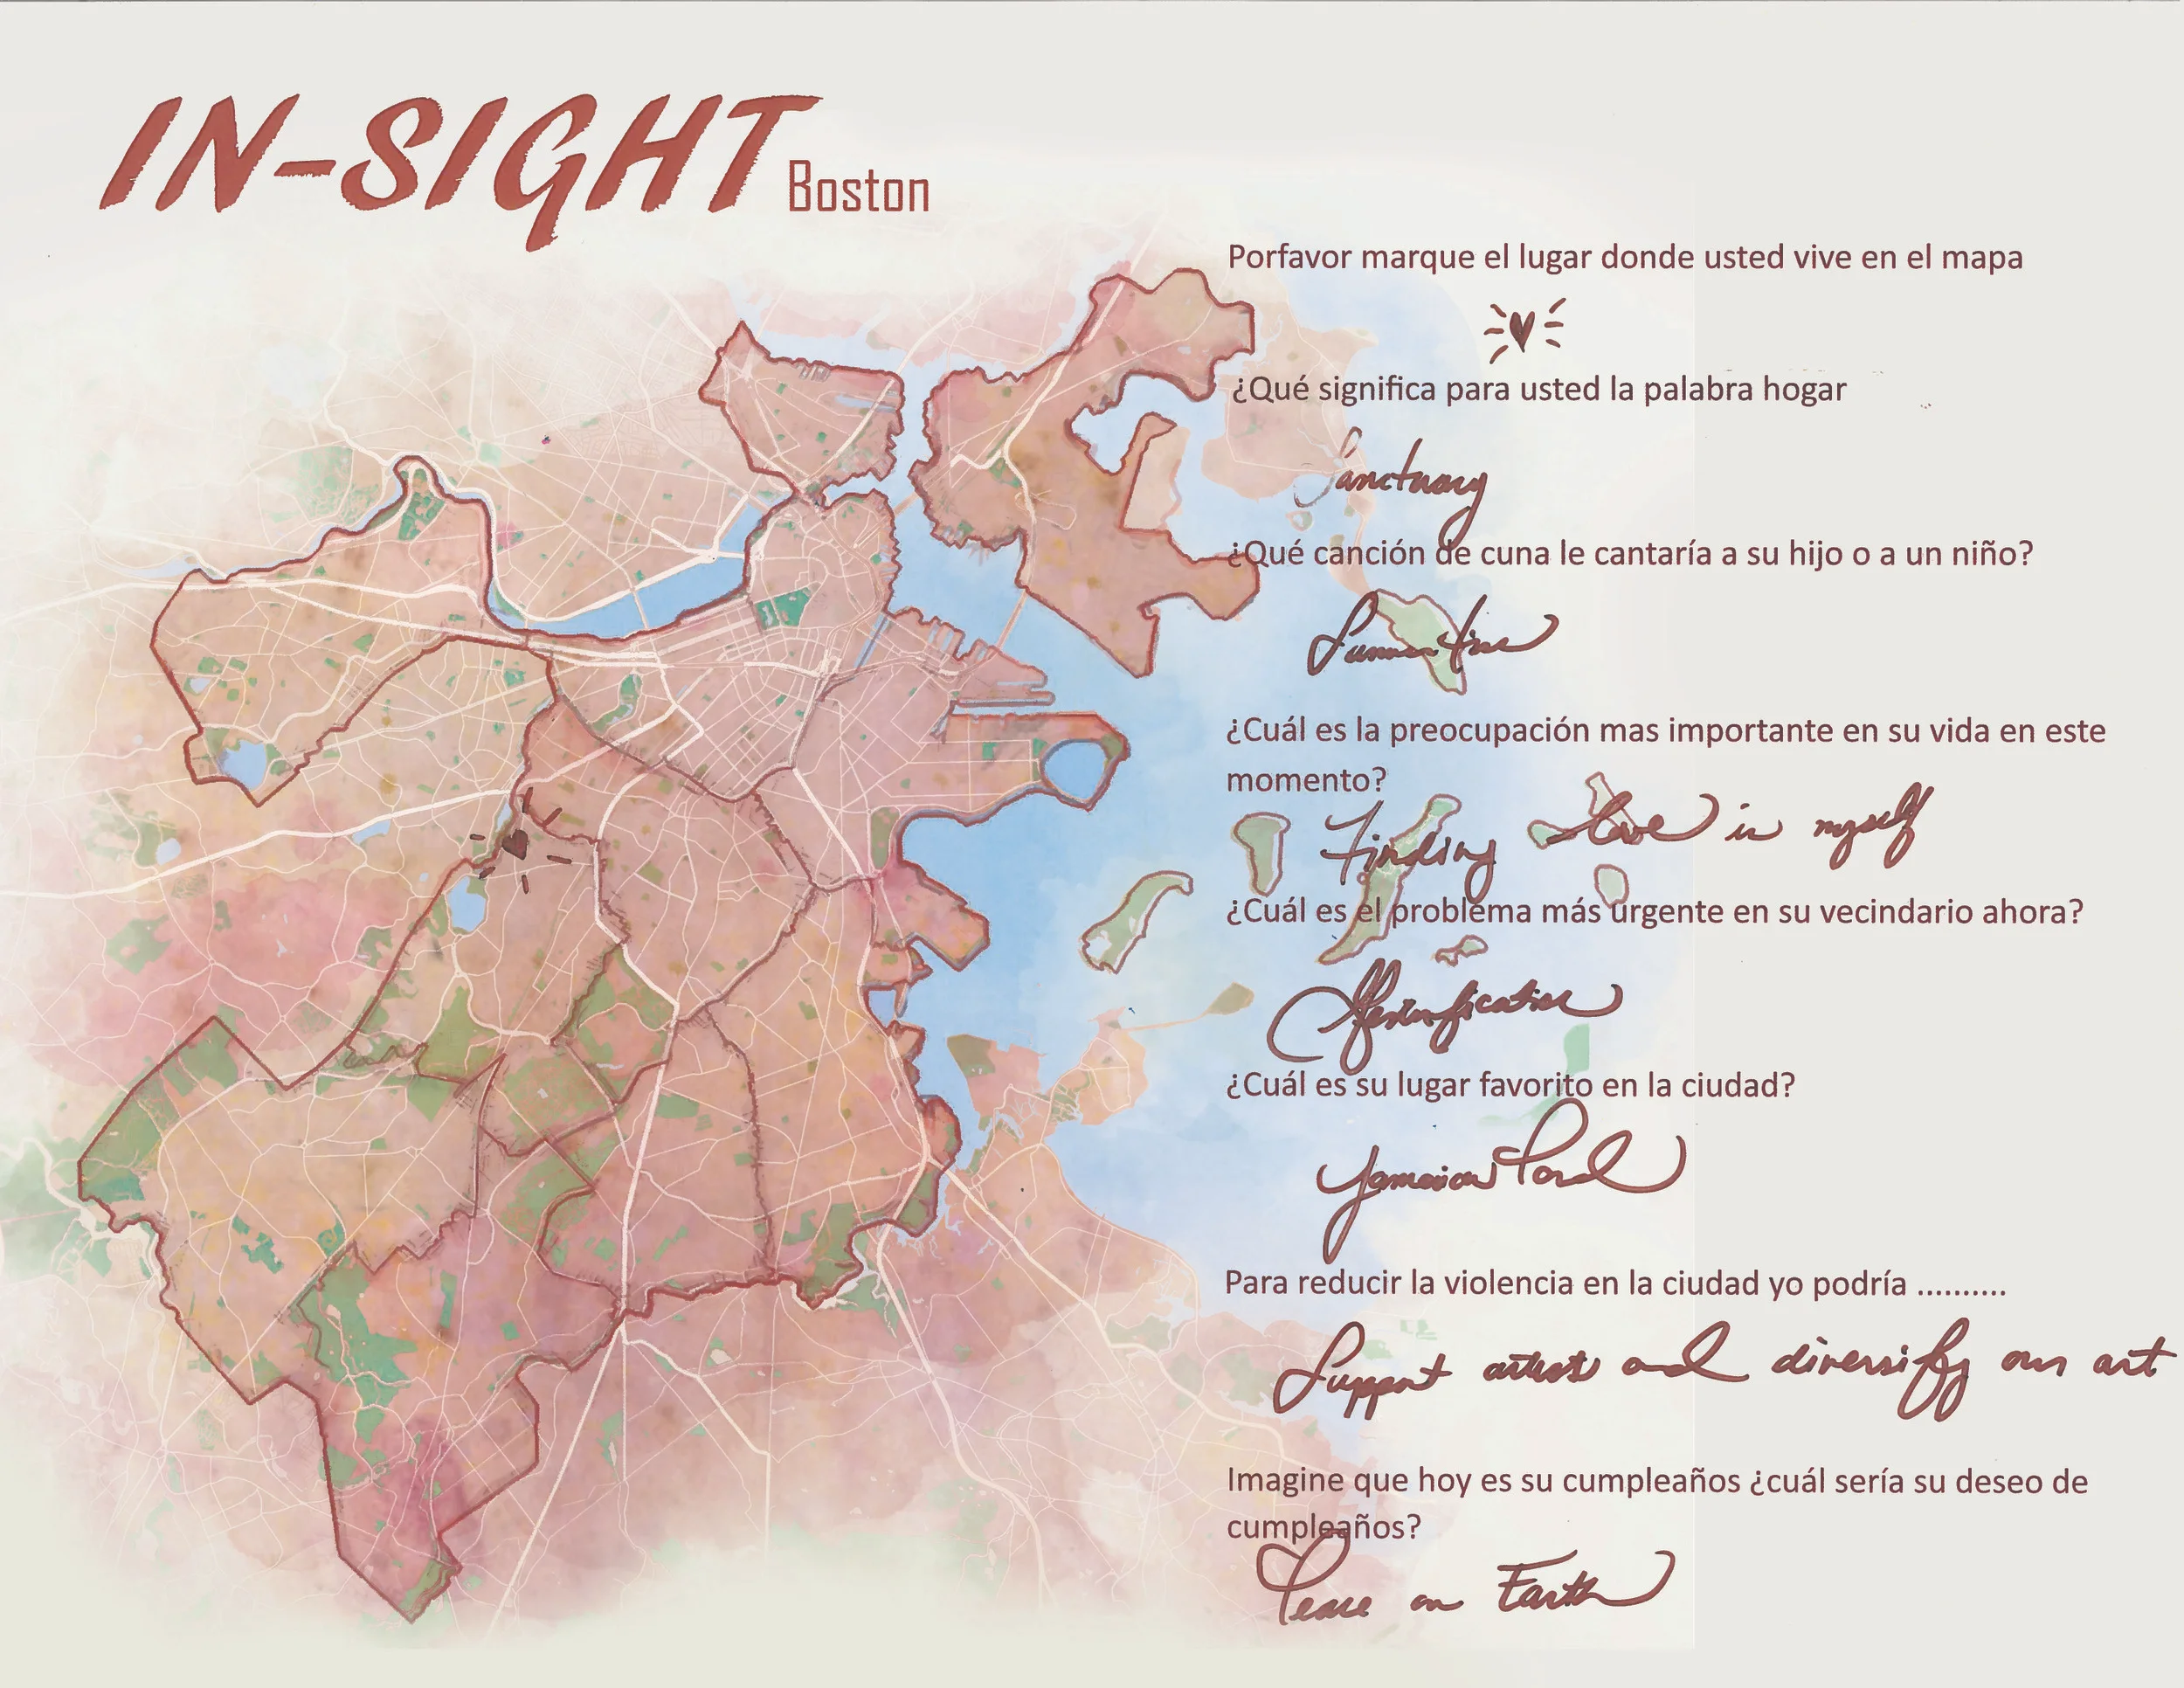 IN-SIGHT Boston
Porfavor marque el lugar donde usted vive en el mapa
¿Qué significa para usted la palabra hogar
Sanctuary
¿Qué canción de cuna le cantaría a su hijo o a un niño?
Summertime
¿Cuál es la preocupación mas importante en su vida en este
momento?
Finding love in myself
¿Cuál es el problema más urgente en su vecindario ahora?
Gentrification
¿Cuál es su lugar favorito en la ciudad?
Jamaica Pond
Para reducir la violencia en la ciudad yo podría ..........
Support artists and diversify our art
Imagine que hoy es su cumpleaños ¿cuál sería su deseo de
cumpleaños?
Peace on Earth